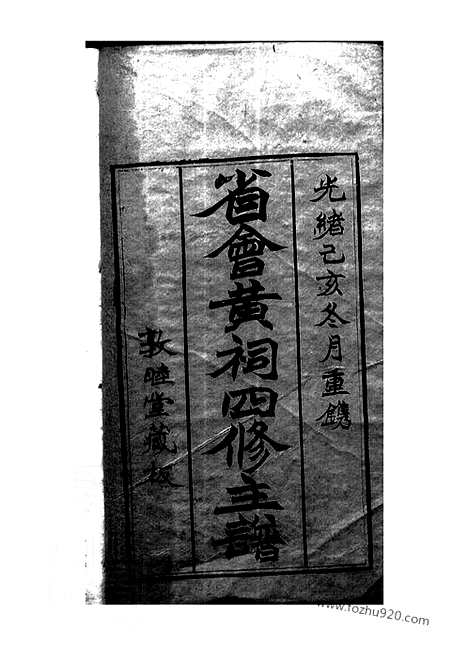 光緒己亥冬月重鐫
省會黃祠四修主譜
敦睦堂藏板
www.fozhu920.com